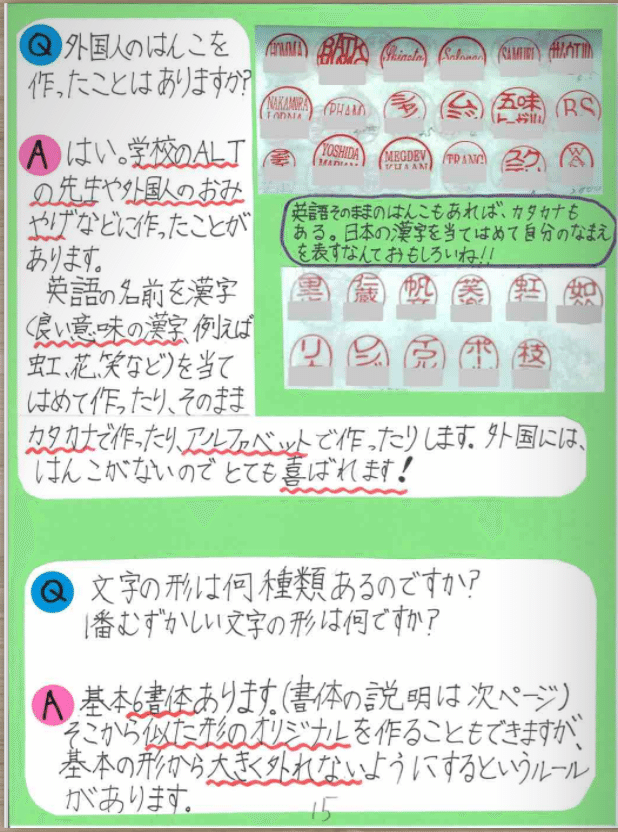 Q 外国人のはんこを
作ったことはありますか?
A はい。学校のALT
の先生や外国人のおみ
やげなどに作ったことが
あります。
英語の名前を漢字
(良い意味の漢字、例えば
虹、花、笑など)を当て
はめて作ったり、そのまま
カタカナで作ったり、アルファベットで作ったりします。外国には、
はんこがないのでとても喜ばれます!
HOMMA
SAMURI
NAKAMURA
PHANG
五味
B.S
YOSHIDA
MEGDEV
TRANG
英語そのままのはんこもあれば、カタカナも
ある。日本の漢字を当てはめて自分のなまえ
を表すなんておもしろいね!!
仁蔵
帆
笑
虹
如
リ
レジ
ポ
枝
Q 文字の形は何種類あるのですか?
1番むずかしい文字の形は何ですか?
A 基本6書体あります。(書体の説明は次ページ)
そこから似た形のオリジナルを作ることもできますが、
基本の形から大きく外れないようにするというルール
があります。
15